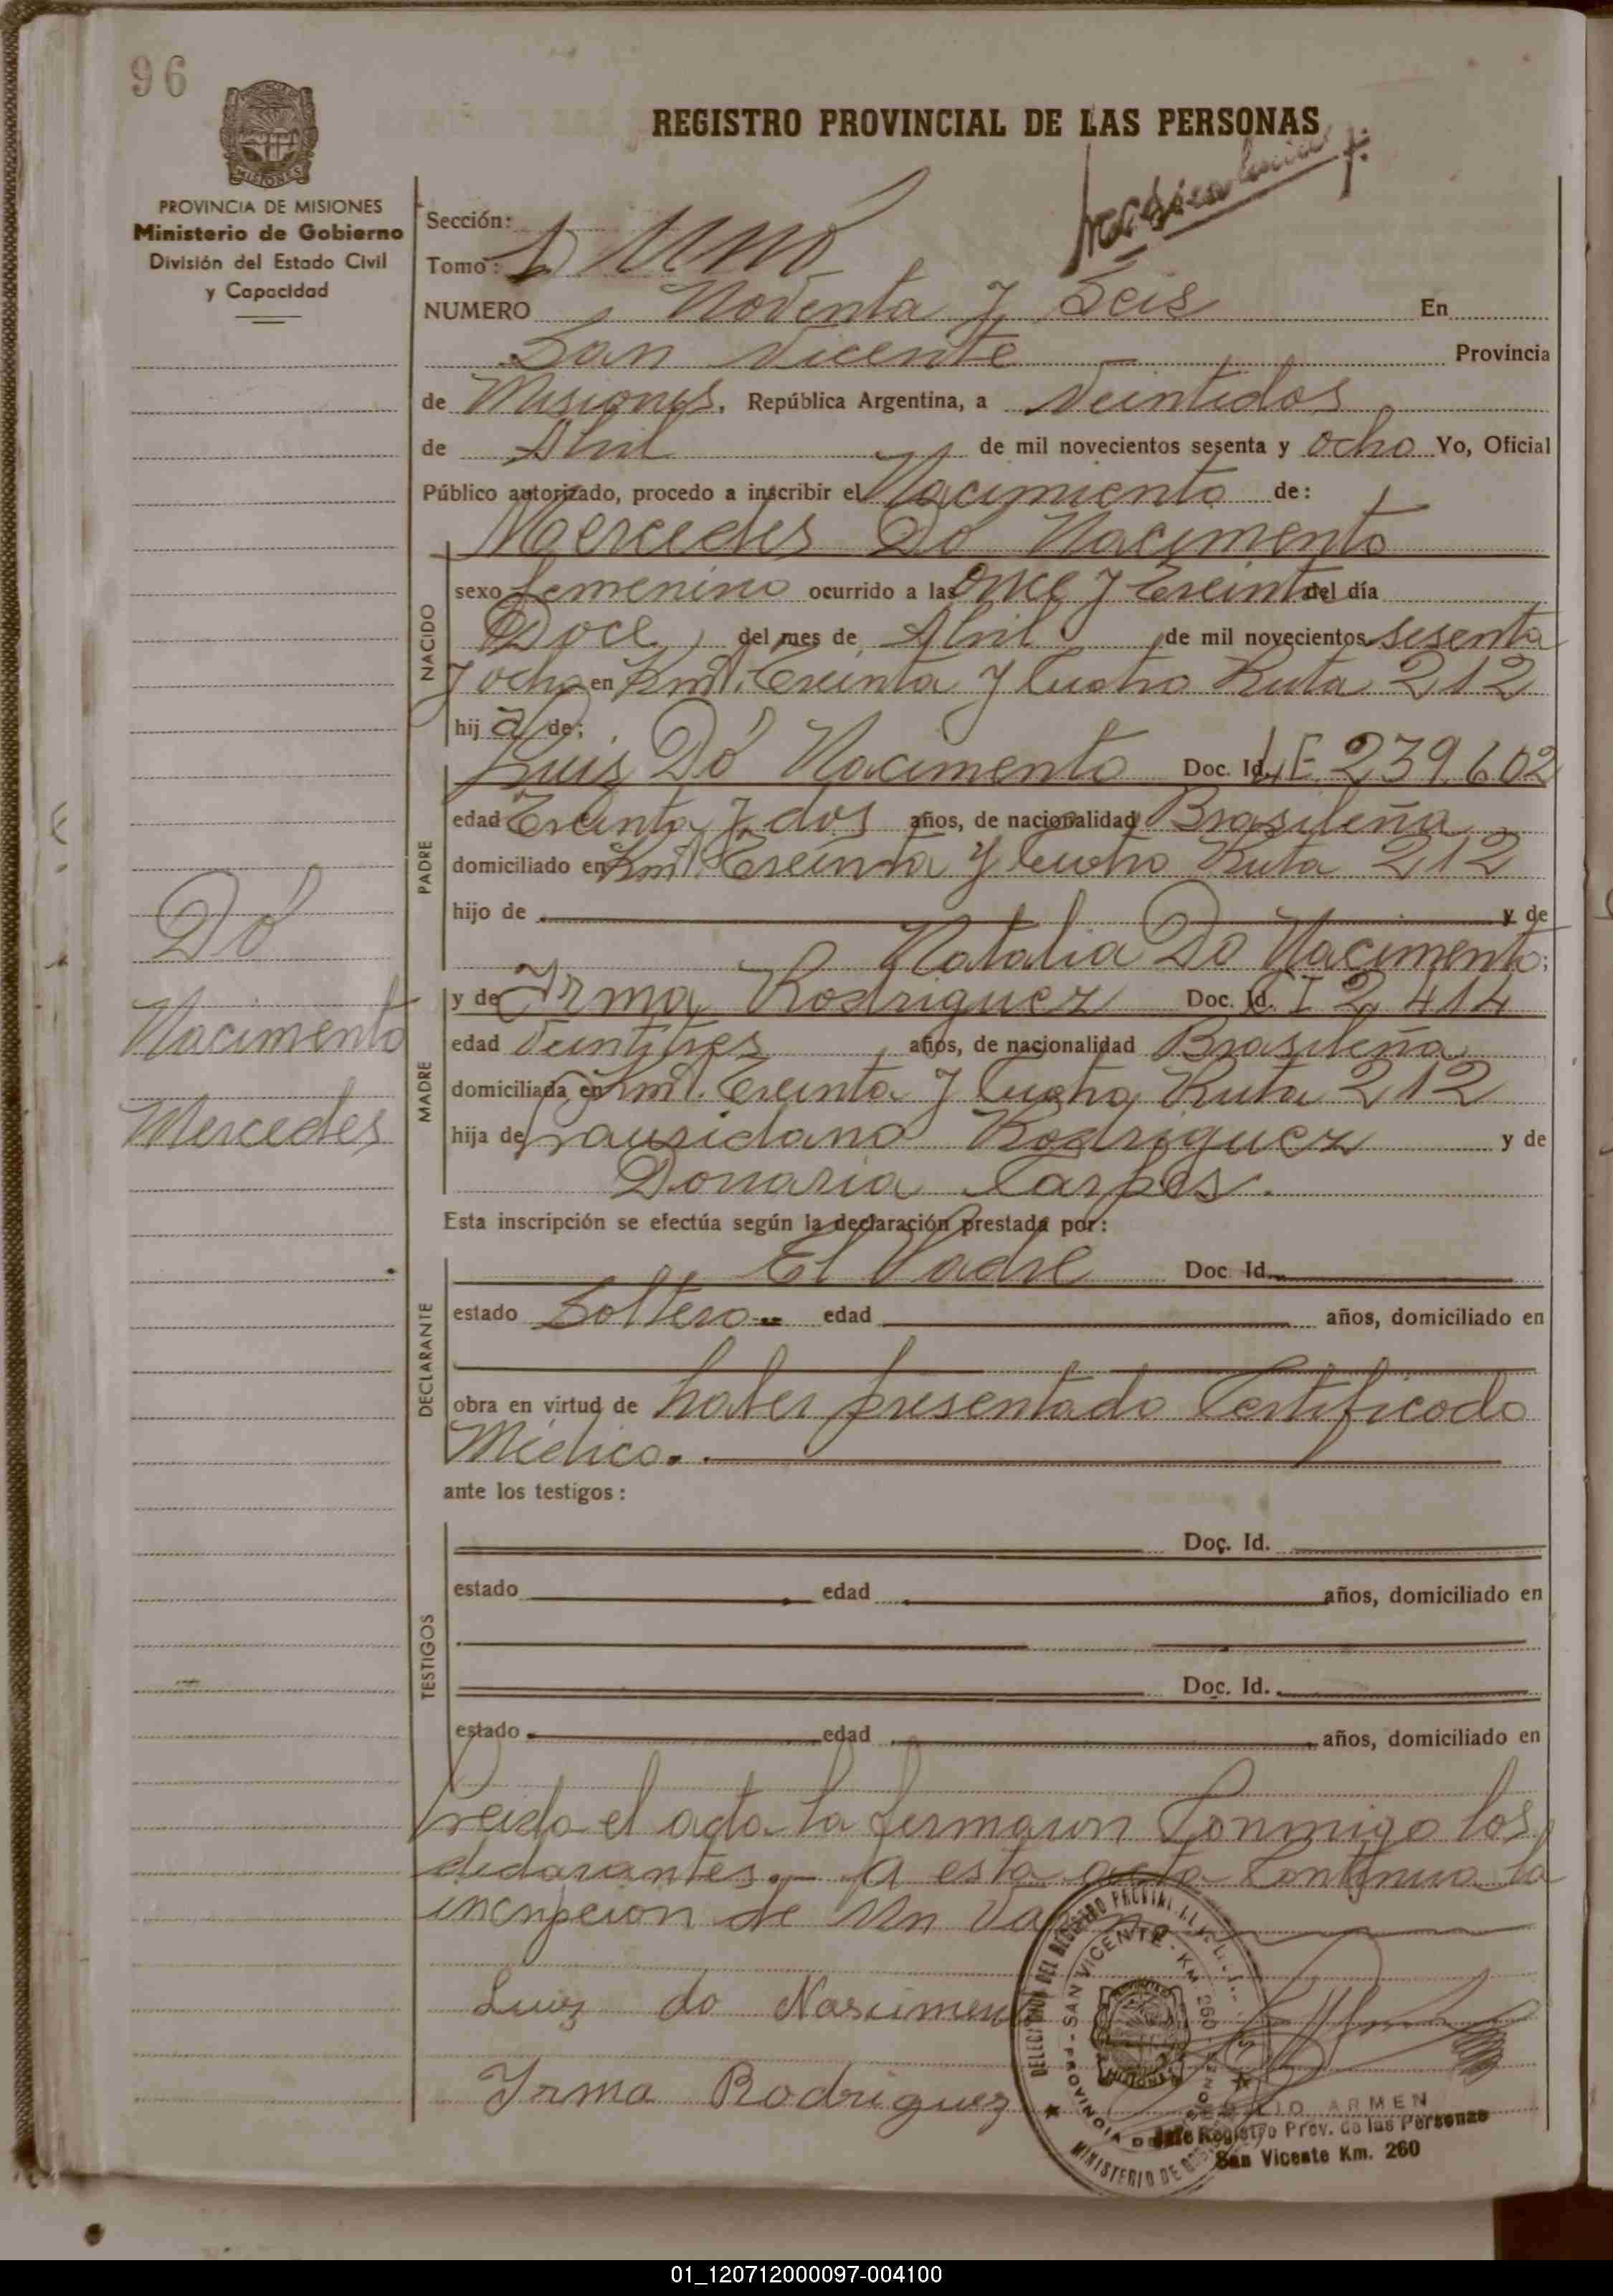 96
REGISTRO PROVINCIAL DE LAS PERSONAS
MISIONES
PROVINCIA DE MISIONES
Ministerio de Gobierno
División del Estado Civil
y Capacidad
Sección:
Tomo: 1) Uno
NUMERO Noventa y Seis En
San Vicente Provincia
de Misiones, República Argentina, a Veintidos
de Abril de mil novecientos sesenta y ocho Yo, Oficial
Público autorizado, procedo a inscribir el Nacimiento de:
Mercedes Dó Nacimento
NACIDO
sexo femenino ocurrido a las once y treinta del día
Doce, del mes de Abril de mil novecientos sesenta
y ocho en Kmt. treinta y Cuatro Ruta 212
hij a de:
PADRE
Luis Dó Nacimento Doc. Id. L.E. 239.602
edad treinta y dos años, de nacionalidad Brasileña
domiciliado en Kmt. treinta y Cuatro Ruta 212
hijo de y de
Natalia Do Nacimento;
Dó
Nacimento
Mercedes
MADRE
y de Irma Rodriguez Doc. Id. C I 2.414
edad Veintitres años, de nacionalidad Brasileña
domiciliada en Kmt. treinta y Cuatro Ruta 212
hija de Rodriguez y de
Donaria
Esta inscripción se efectúa según la declaración prestada por:
DECLARANTE
El Padre Doc. Id.
estado Soltero edad años, domiciliado en
obra en virtud de haber presentado Certificado
Médico.
ante los testigos:
TESTIGOS
Doc. Id.
estado edad años, domiciliado en
Doc. Id.
estado edad años, domiciliado en
Leida el acta la firmaron Conmigo los
declarantes.- A esta acta Continua la
incripcion de Un Varon
Luiz do Nascimento
Yrma Rodriguez
SAN VICENTE - KM 260
MINISTERIO DE
ARMEN
Jefe Registro Prov. de las Personas
San Vicente Km. 260
01_120712000097-004100